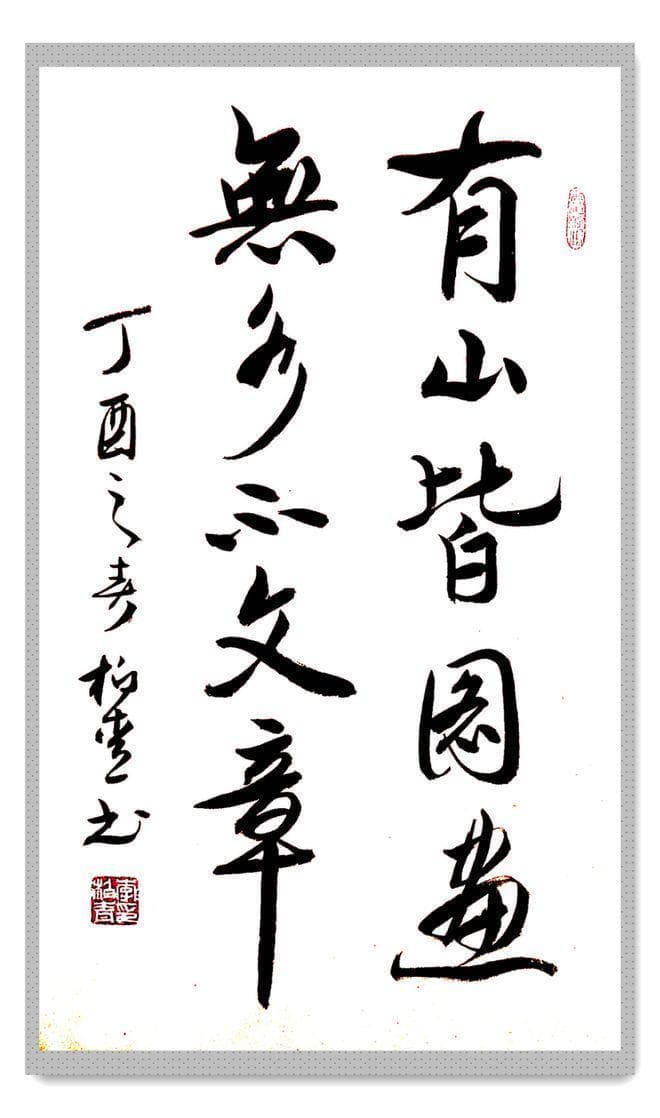 有山皆圖畫
無水不文章
丁酉之春柏青书